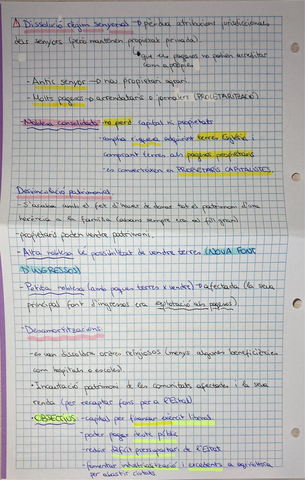 Dissolució règim senyorial → perdua atribucions jurisdiccionals
dels senyors (però mantenen propietat privada)
↳ que els pagesos no podien acreditar
com a pròpies
- Antic senyor → nou propietari agrari
- Molts pagesos → arrendataris o jornalers (PROLETARITZACIÓ)
- Noblesa consolidada no perd capital ni propietats
- amplia riquesa adquirint terres Església i
comprant terres als pagesos propietaris
- es converteixen en PROPIETARIS CAPITALISTES.
Desvinculació patrimonial
- S'acaba amb el fet d'haver de donar tot el patrimoni d'una
herència a la família (abans sempre era al fill gran)
- propietaris poden vendre patrimoni.
- Alta noblesa té possibilitat de vendre terres (NOVA FONT
D'INGRESSOS)
- Petita noblesa (amb poques terres x vendre) → afectada (la seva
principal font d'ingressos era explotació als pagesos)
- Desamortitzacions:
· es van dissoldre ordres religiosos (menys algunes beneficències
com hospitals o escoles)
· Incautació patrimoni de les comunitats afectades i la seva
renda (per recaptar fons per a l'Estat)
· OBJECTIUS: - capital per finançar exèrcit liberal
- poder pagar deute públic
- reduir dèficit pressupostari de l'Estat
- fomentar industrialització i excedents a agricultura
per abastir ciutats.